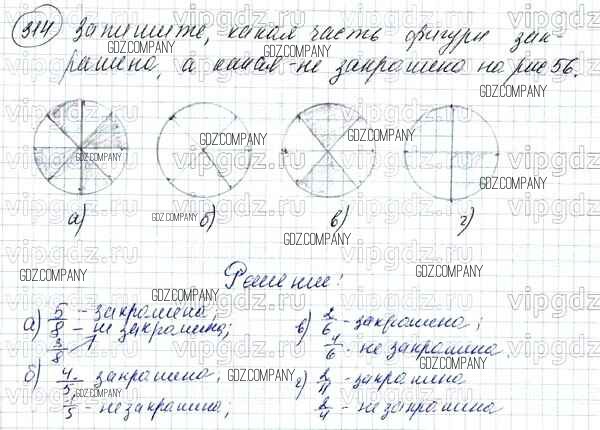 314 Запишите, какая часть фигуры зак-
рашено, а какая-не закрашено на рис 56.
а) б) в) г)
Решение:
а) 5/8 - закрашена;
3/8 - не закрашена;
б) 4/5 - закрашено,
1/5 - не закрашена;
в) 2/6 - закрашена;
4/6 - не закрашена
г) 2/4 - закрашена
2/4 - не закрашена
GDZ.COMPANY
vipgdz.ru